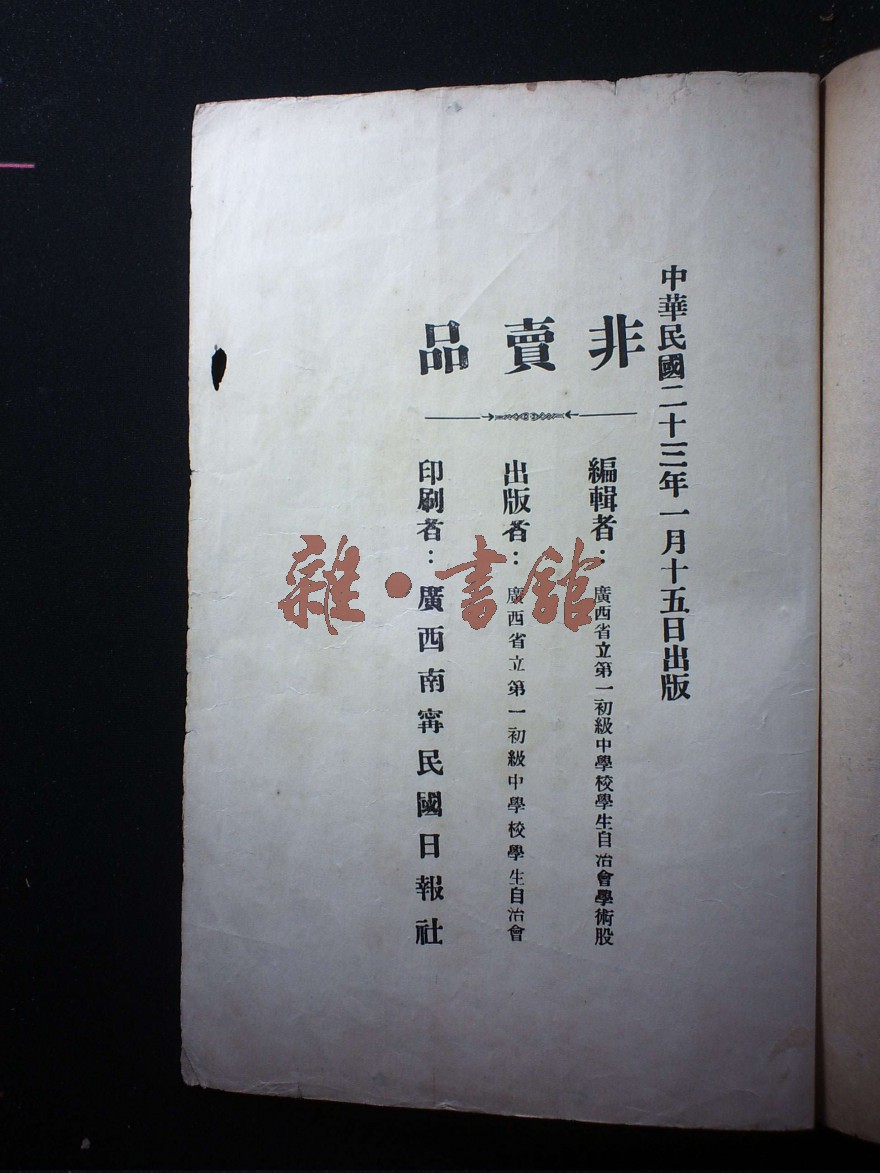 中華民國二十三年一月十五日出版
非賣品
編輯者：廣西省立第一初級中學校學生自治會學術股
出版者：廣西省立第一初級中學校學生自治會
印刷者：廣西南寗民國日報社
雜·書館